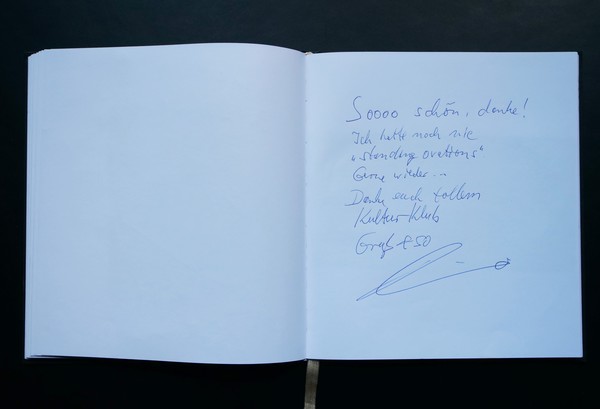 Soooo schön, danke!
Ich hatte noch nie
"standing ovations"
Gerne wieder...
Danke euch tollem
Kultur-Klub
Gruß